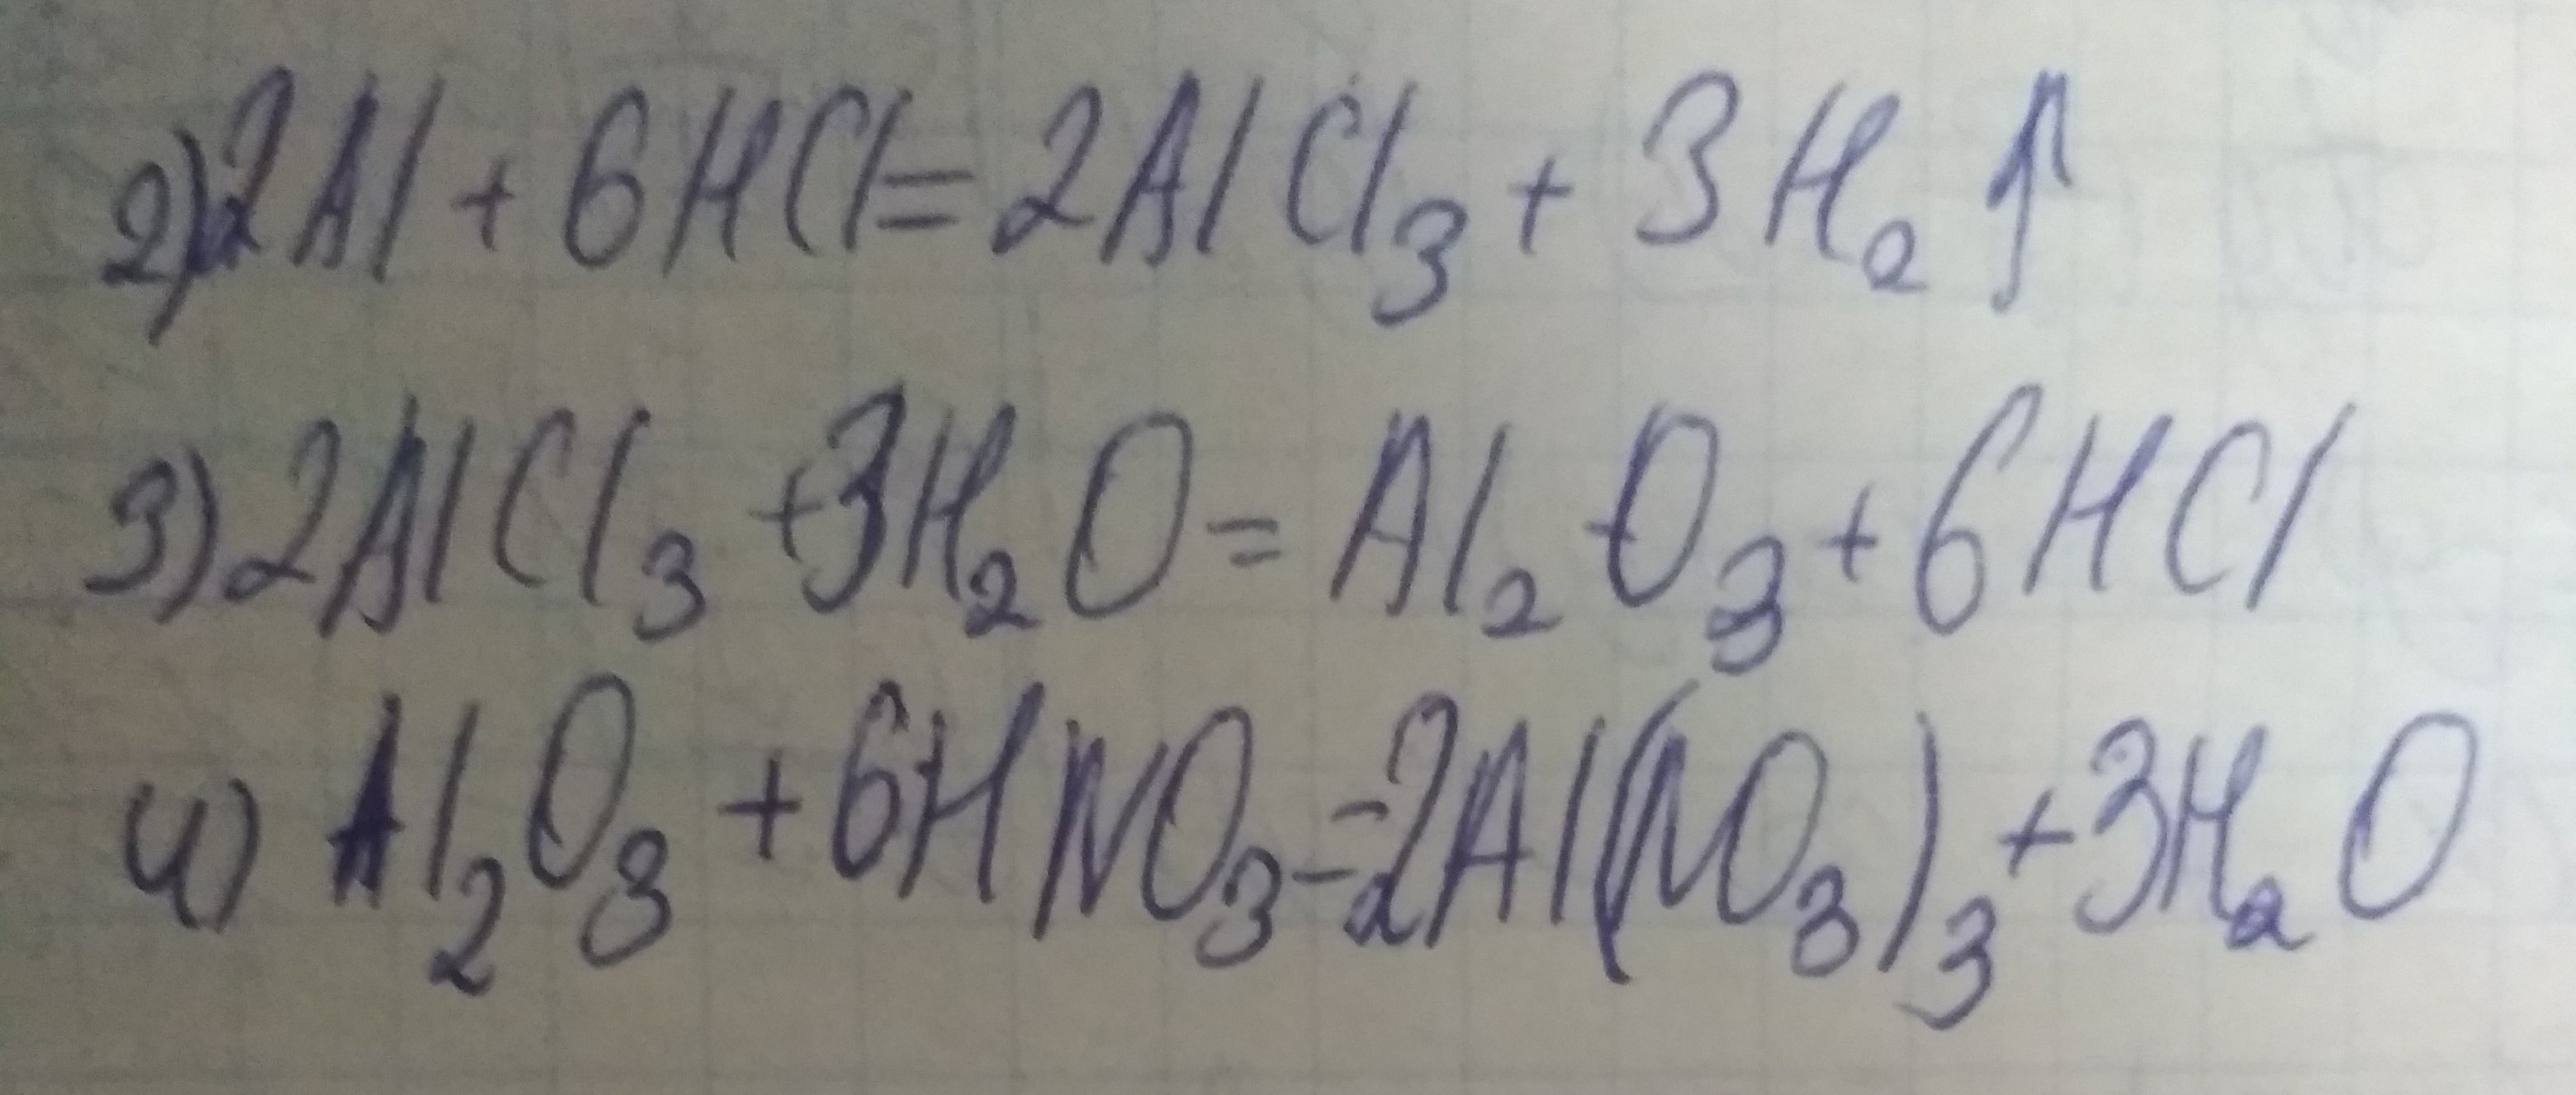 2) 2Al + 6HCl = 2AlCl₃ + 3H₂↑
3) 2AlCl₃ + 3H₂O = Al₂O₃ + 6HCl
4) Al₂O₃ + 6HNO₃ = 2Al(NO₃)₃ + 3H₂O